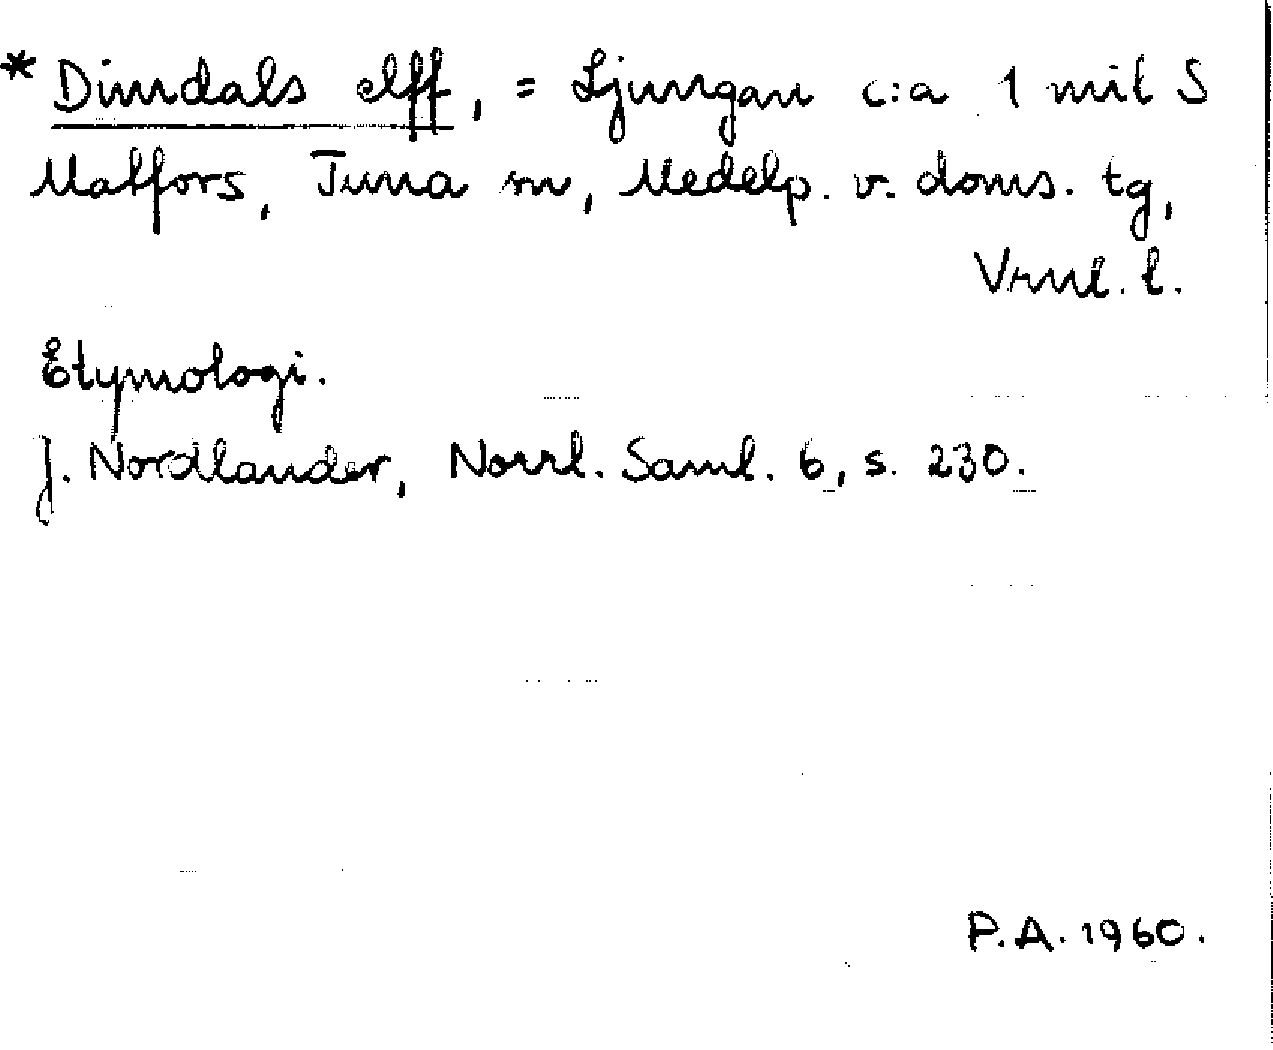 * Dimdals elff, = Ljungan c:a 1 mil S
Matfors, Tuna sn, Medelp. v. doms. tg,
Vrnl. l.
Etymologi.
J. Nordlander, Norrl. Saml. 6, s. 230.
P.A. 1960.